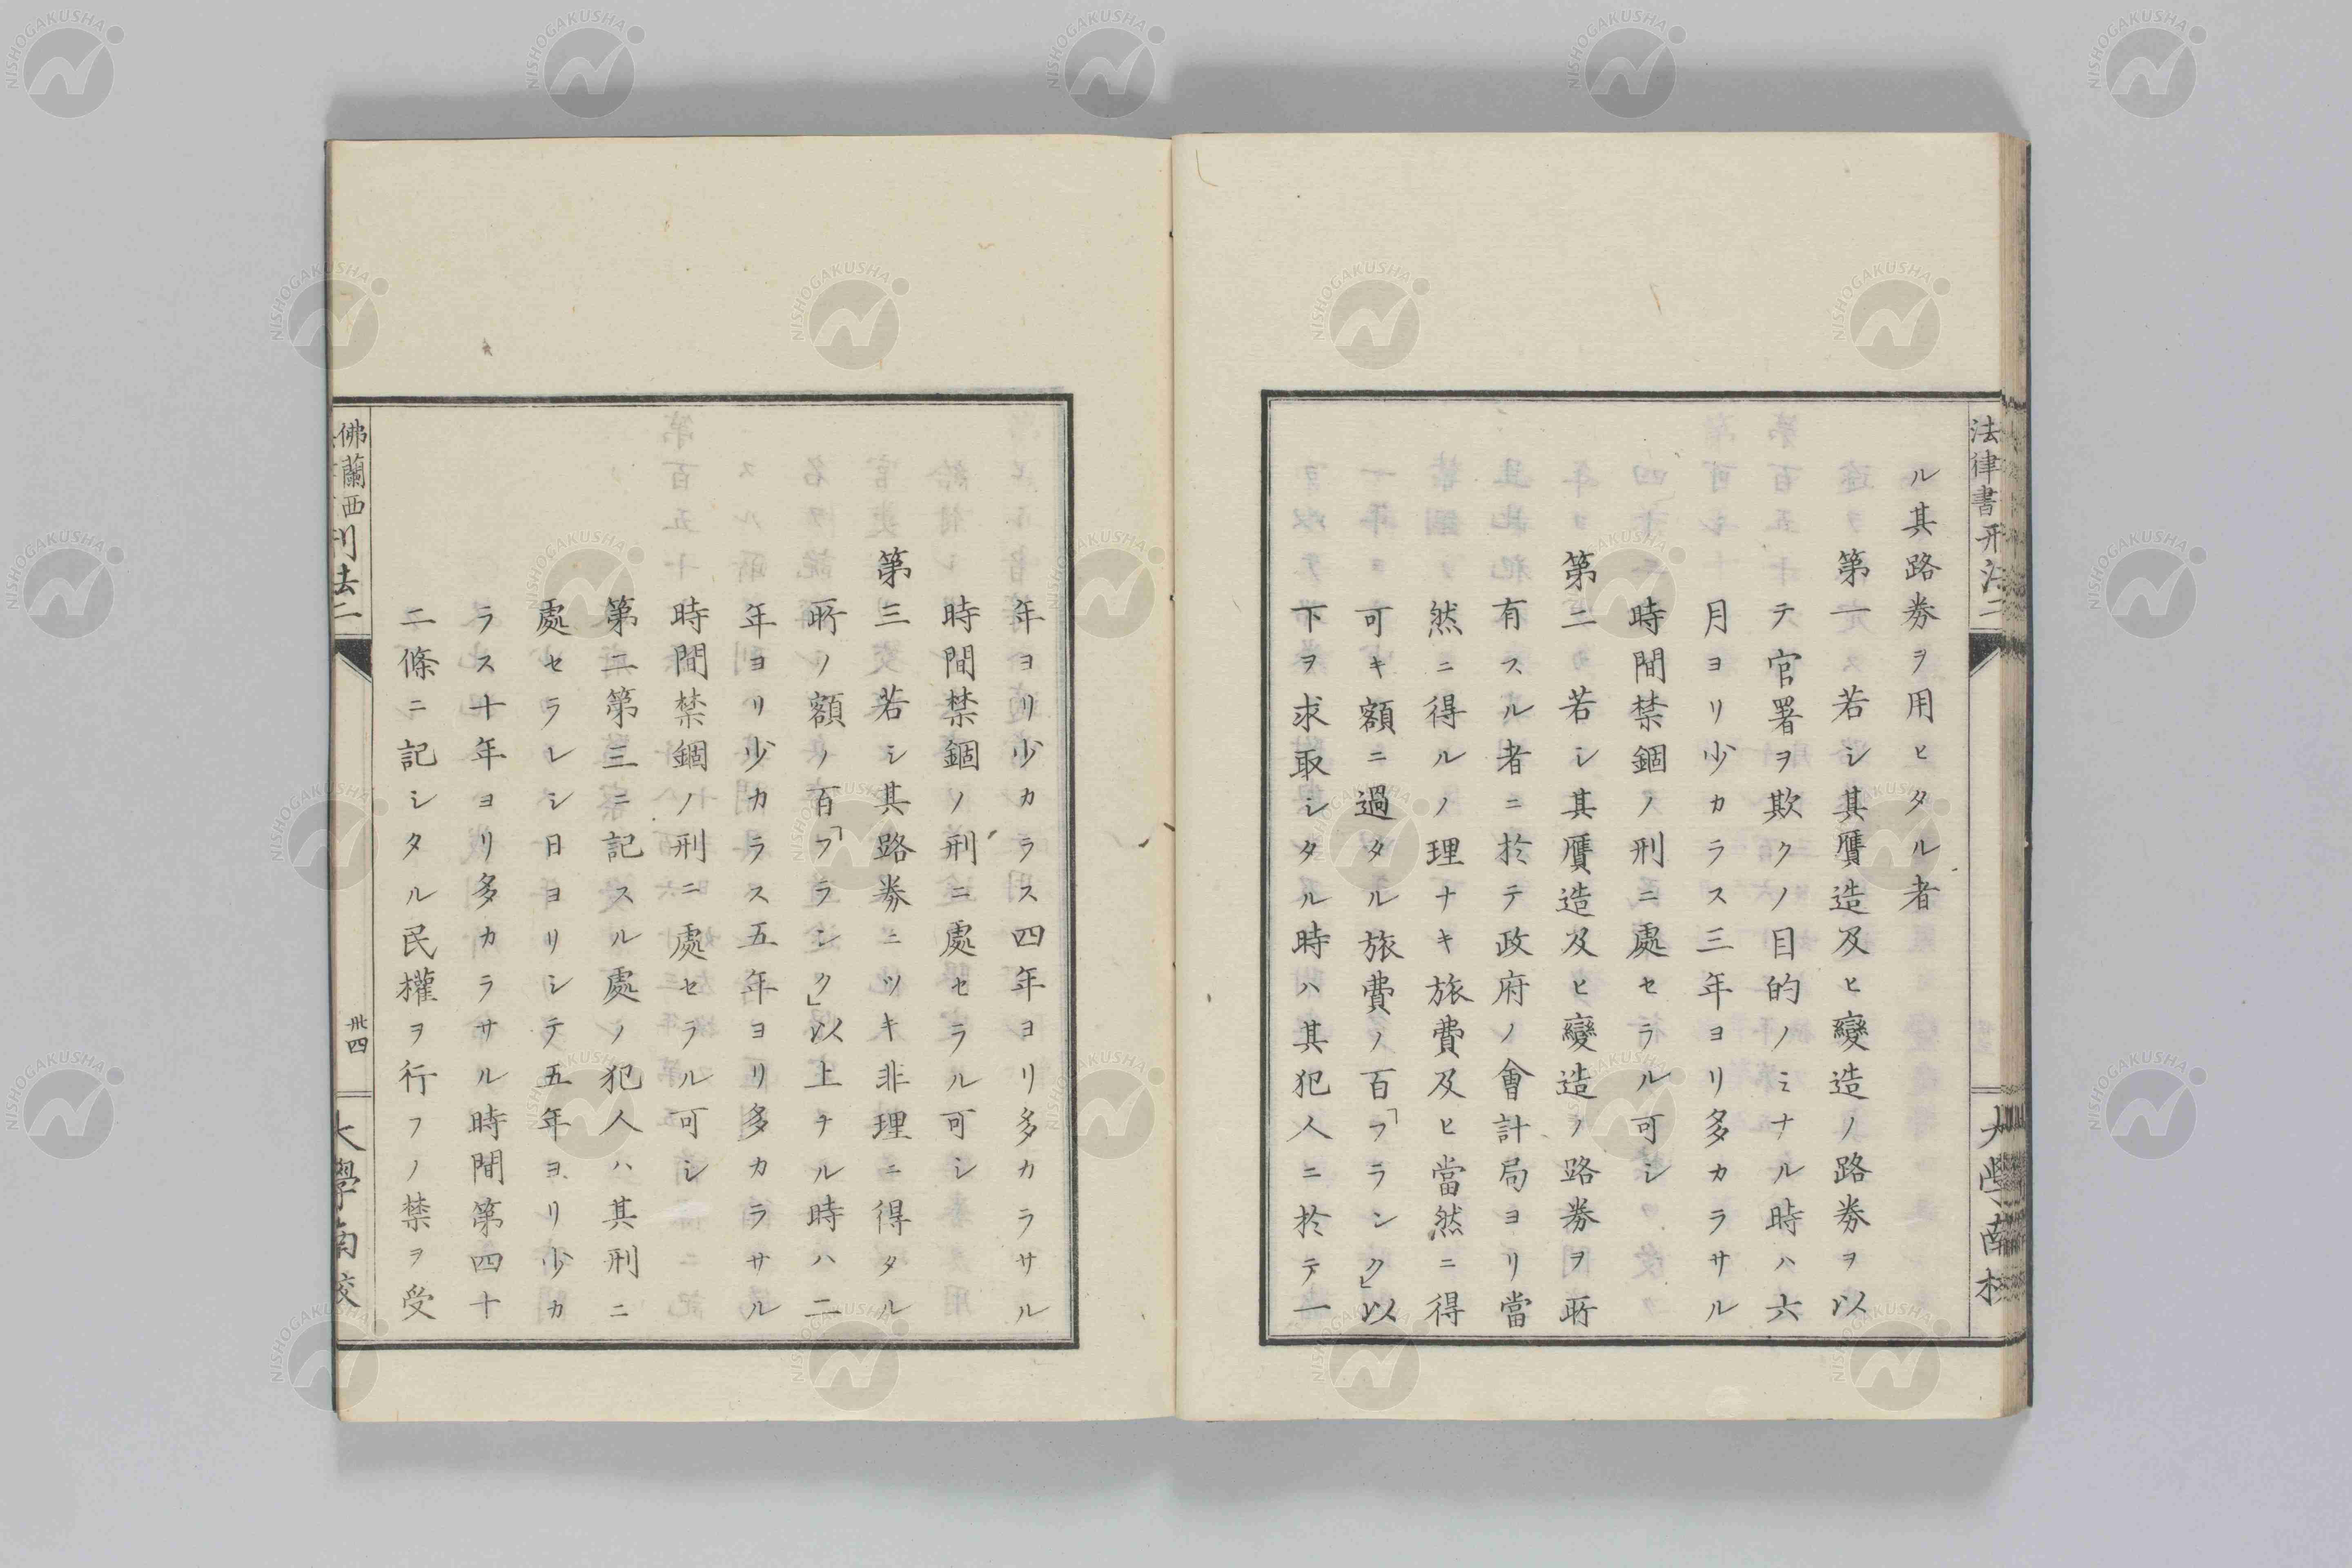 法律書刑法二
ル其路券ヲ用ヒタル者
第一若シ其贋造及ヒ變造ノ路券ヲ以
テ官署ヲ欺クノ目的ノミナル時ハ六
月ヨリ少カラス三年ヨリ多カラサル
時間禁錮ノ刑ニ處セラル可シ
第二若シ其贋造及ヒ變造ノ路券ヲ所
有スル者ニ於テ政府ノ會計局ヨリ當
然ニ得ルノ理ナキ旅費及ヒ當然ニ得
可キ額ニ過タル旅費ノ百「フランク」以
下ヲ求取シタル時ハ其犯人ニ於テ一
大學南校
年ヨリ少カラス四年ヨリ多カラサル
時間禁錮ノ刑ニ處セラル可シ
第三若シ其路券ニツキ非理ニ得タル
所ノ額ノ百「フランク」以上ナル時ハ二
年ヨリ少カラス五年ヨリ多カラサル
時間禁錮ノ刑ニ處セラル可シ
第二第三ニ記スル處ノ犯人ハ其刑ニ
處セラレシ日ヨリシテ五年ヨリ少カ
ラス十年ヨリ多カラサル時間第四十
二條ニ記シタル民權ヲ行フノ禁ヲ受
佛蘭西
刑法二
卅四
大學南校
NISHOGAKUSHA